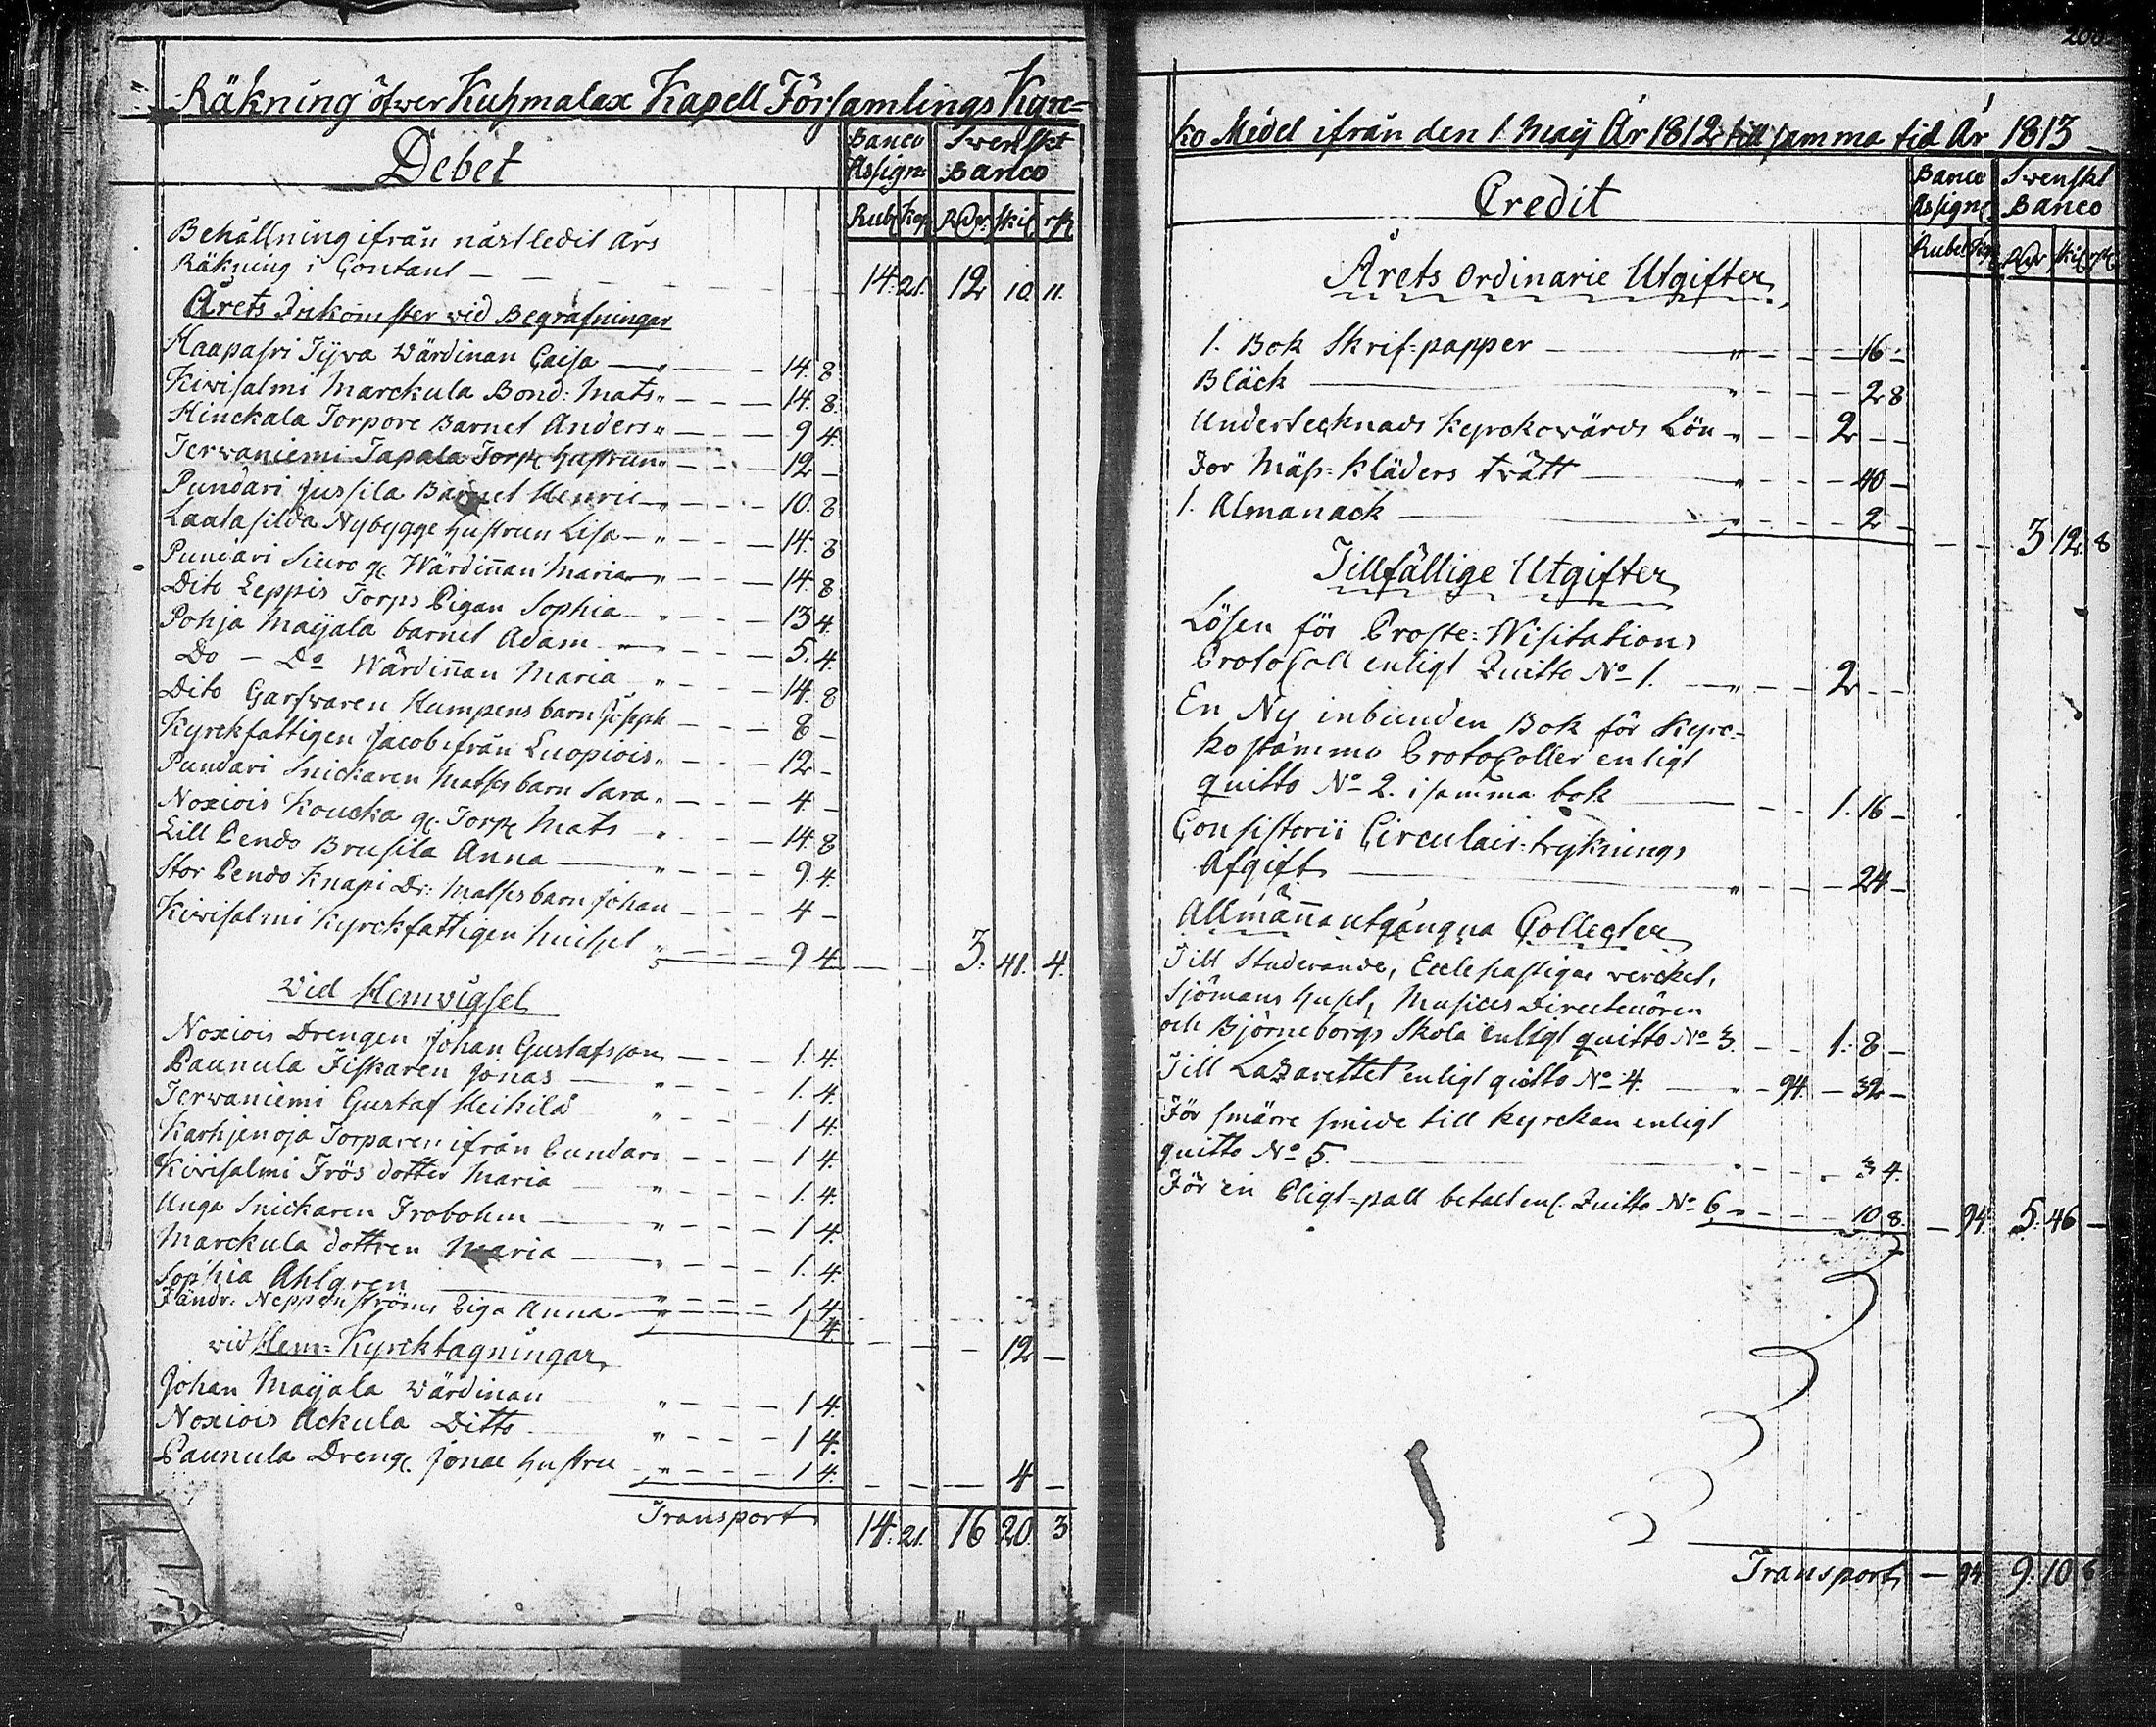 Räkning öfwer Kuhmalax Kapell Församlings Kyrc=
Debet
Banco Assign:
Swenskt Banco
Rub: Kop RDr. skil rst
Behållning ifrån nästledit Års
Räkning i Contant — 14. 21. 12 10. 11.
Årets Inkomster vid Begrafningar
Haapasri Jÿva Wärdinan Caisa — 14. 8
Kivisalmi Marckula Bond: Mats — 14. 8.
Hinckala Torpare Barnet Anders — 9 4.
Jerwaniemi Tapala Torp: Hustrun — 12 —
Pundari Jussila Barnet Henric — 10. 8
Laatasilda Nybygge hustrun Lisa — 14. 8
Pundari Siuro g: Wärdinnan Maria — 14. 8
Dito Leppis Torps Pigan Sophia — 13 4.
Pohja Maijala barnet Adam — 5. 4.
Do — Do Wärdinnan Maria — 14. 8
Dito Garfvaren Humpens barn Joseph — 8 —
Kyrckfattigen Jacob ifrån Luopiois — 12 —
Pundari Snickaren Matses barn Sara — 4 —
Noxiois Koucka g: Torp: Mats — 14. 8
Lill Pendo Brusila Anna — 9. 4.
Stor Pendo Knapi Dr: Matses barn Johan — 4 —
Kivisalmi Kyrckfattigen — 9 4. — — 3. 41. 4.
Vid Hemvigsel
Noxiois Drengen Johan Gustafsson — 1. 4.
Paunula Fiskaren Jonas — 1. 4.
Jerwaniemi Gustaf Heikild — 1 4.
Karhjenoja Torparen ifrån Pundari — 1 4.
Kivisalmi Frös dotter Maria — 1. 4.
Unga Snickaren Frobohm — 1 4.
Marckula dottren Maria — 1. 4.
Sophia Ahlgren — 1 4.
Fändr: Neppenströms Piga Anna — 1 4. — — — 12 —
vid Hem=Kyrcktagningar
Johan Maijala Wärdinan — 1 4.
Noxiois Ackula Ditto — 1 4.
Paunula Dreng: Jonae hustru — 1 4. — — — 4 —
Transport 14. 21. 16 20. 3
ko Medel ifrån den 1 Maij År 1812 till samma tid År 1813
Credit
Banco Assign:
Swenskt Banco
Rubel Kop RDr skil rst
Årets Ordinarie Utgifter
1. Bok Skrif=papper — 16 —
Bläck — 2 8
Undertecknads Kyrckowärds Lön — 2 — —
For Mäss=kläders tvätt — 40 —
1. Almanack — 2 — — — 3 12. 8
Tillfällige Utgifter
Lösen för Proste=Wisitations
Protocoll enligt Quitto No 1. — 2 — —
En Ny inbunden Bok för Kyrc-
ko stämmo Protocoller enligt
quitto No 2. i samma bok — 1. 16 —
Consistorii Circulair=tryknings
Afgift — 24 —
Allmänna utgångna Collecter
Till Studerande, Ecclesiastique vercket,
Sjömans huset, Musices Directeuren
och Björneborgs Skola enligt quitto No 3. — 1. 8 —
Till Lazarettet enligt quitto No 4. — 94. — 32 —
För smärre smide till kyrckan enligt
quitto No 5. — 3 4.
För en Pligt=pall betalt enl. Quitto No 6. — 10 8. — 94. 5. 46 —
Transport — 94 9. 10 8